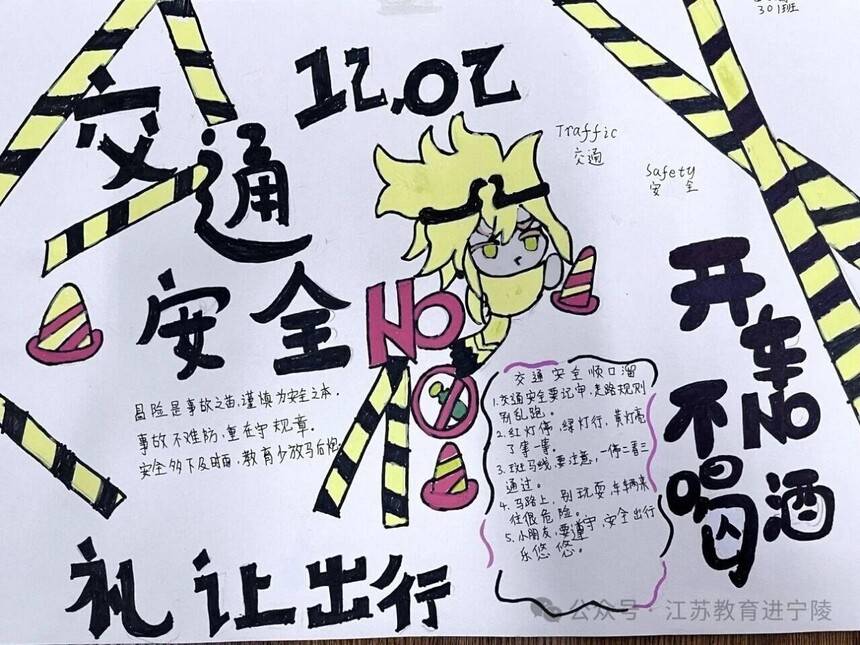 301班
12.02
交通
安全
Traffic
交通
Safety
安全
NO
开车NO
不喝酒
冒险是事故之苗,谨慎为安全之本,
事故不难防,重在守规章。
安全多下及时雨,教育少放马后炮
交通安全顺口溜
1.交通安全要记牢,走路规则
别乱跑。
2.红灯停,绿灯行,黄灯亮
了等一等。
3.斑马线,要注意,一停二看三
通过。
4.马路上,别玩耍,车辆来
往很危险。
5.小朋友,要遵守,安全出行
乐悠悠。
礼让出行
公众号·江苏教育进宁陵